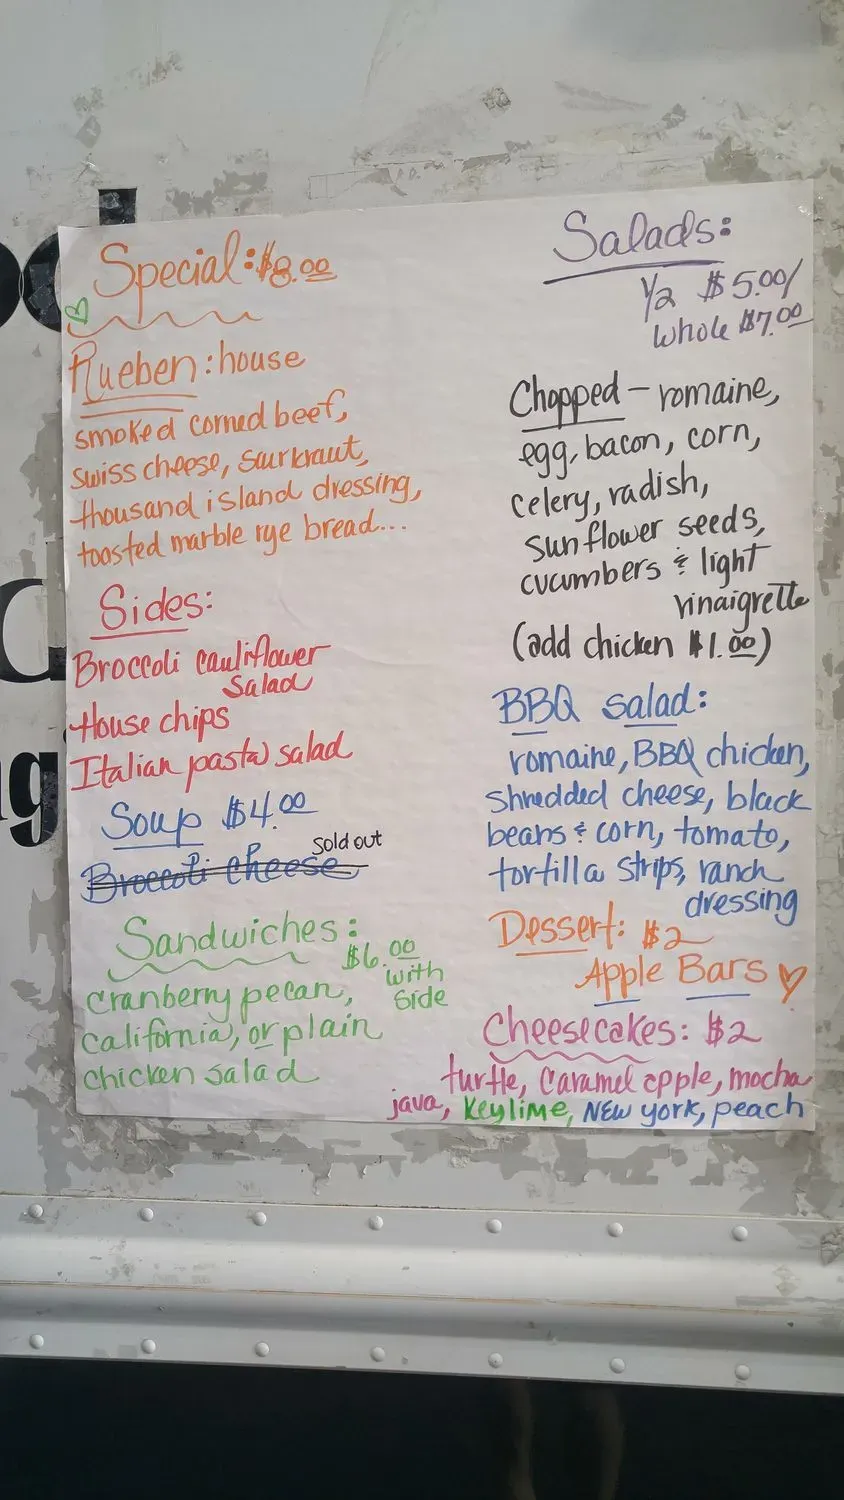 Special: $8.00
Rueben: house
smoked corned beef,
swiss cheese, surkraut,
thousand island dressing,
toasted marble rye bread...
Sides:
Broccoli cauliflower
Salad
House chips
Italian pasta salad
Soup $4.00
Sold out
Broccoli Cheese
Sandwiches:
$6.00
with
Side
Cranberry pecan,
California, or plain
chicken salad
Salads:
1/2 $5.00/
Whole $7.00
Chopped - romaine,
egg, bacon, corn,
celery, radish,
sunflower seeds,
cucumbers & light
vinaigrette
(add chicken $1.00)
BBQ salad:
romaine, BBQ chicken,
Shredded cheese, black
beans & corn, tomato,
tortilla strips, ranch
dressing
Dessert: $2
Apple Bars
Cheesecakes: $2
turtle, Caramel apple, mocha
java, Keylime, NEW york, peach